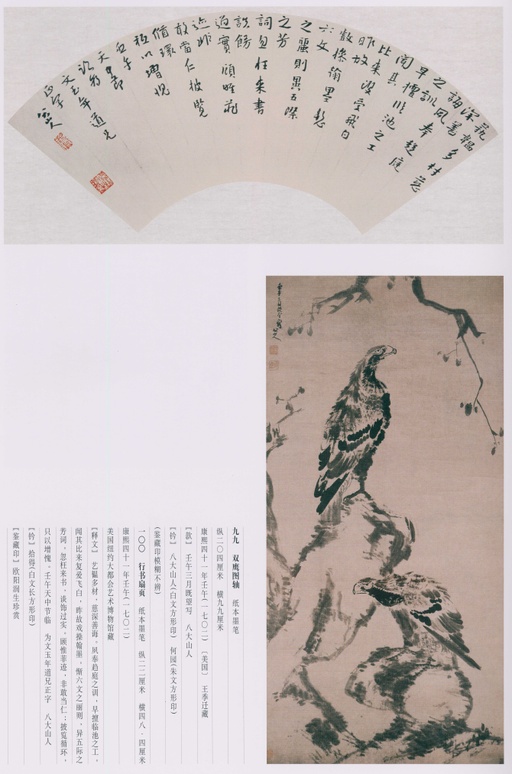 藝韞多材慈
深善
誨夙奉趨庭
之訓
早擅臨池之工
聞其
比來復愛飛白
昨故
戲操翰墨慙
六文
之麗則異五際
之芳
詞忽枉來書
談飾
過實顧惟菲
迹非
敢當仁披覽
循環
祇以增愧
壬午
天中節
臨為
文玉年道兄
正字
八大山人
九九 双鹰图轴 纸本墨笔
纵二〇四厘米 横九九厘米
康熙四十一年壬午(一七〇二) [美国] 王季迁藏
[款] 壬午三月既望写 八大山人
[钤] 八大山人(白文方形印) 何园(朱文方形印)
(鉴藏印模糊不辨)
一〇〇 行书扇页 纸本墨笔 纵二二厘米 横四八·四厘米
康熙四十一年壬午(一七〇二)
美国纽约大都会艺术博物馆藏
[释文] 艺韫多材,慈深善诲,夙奉趋庭之训,早擅临池之工,
闻其比来复爱飞白,昨故戏操翰墨,惭六文之丽则,异五际之
芳词,忽枉来书,谈饰过实,顾惟菲迹,非敢当仁;披览循环,
只以增愧。壬午天中节临 为文玉年道兄正字 八大山人
[钤] 拾得(白文长方形印)
[鉴藏印] 欧阳润生珍赏